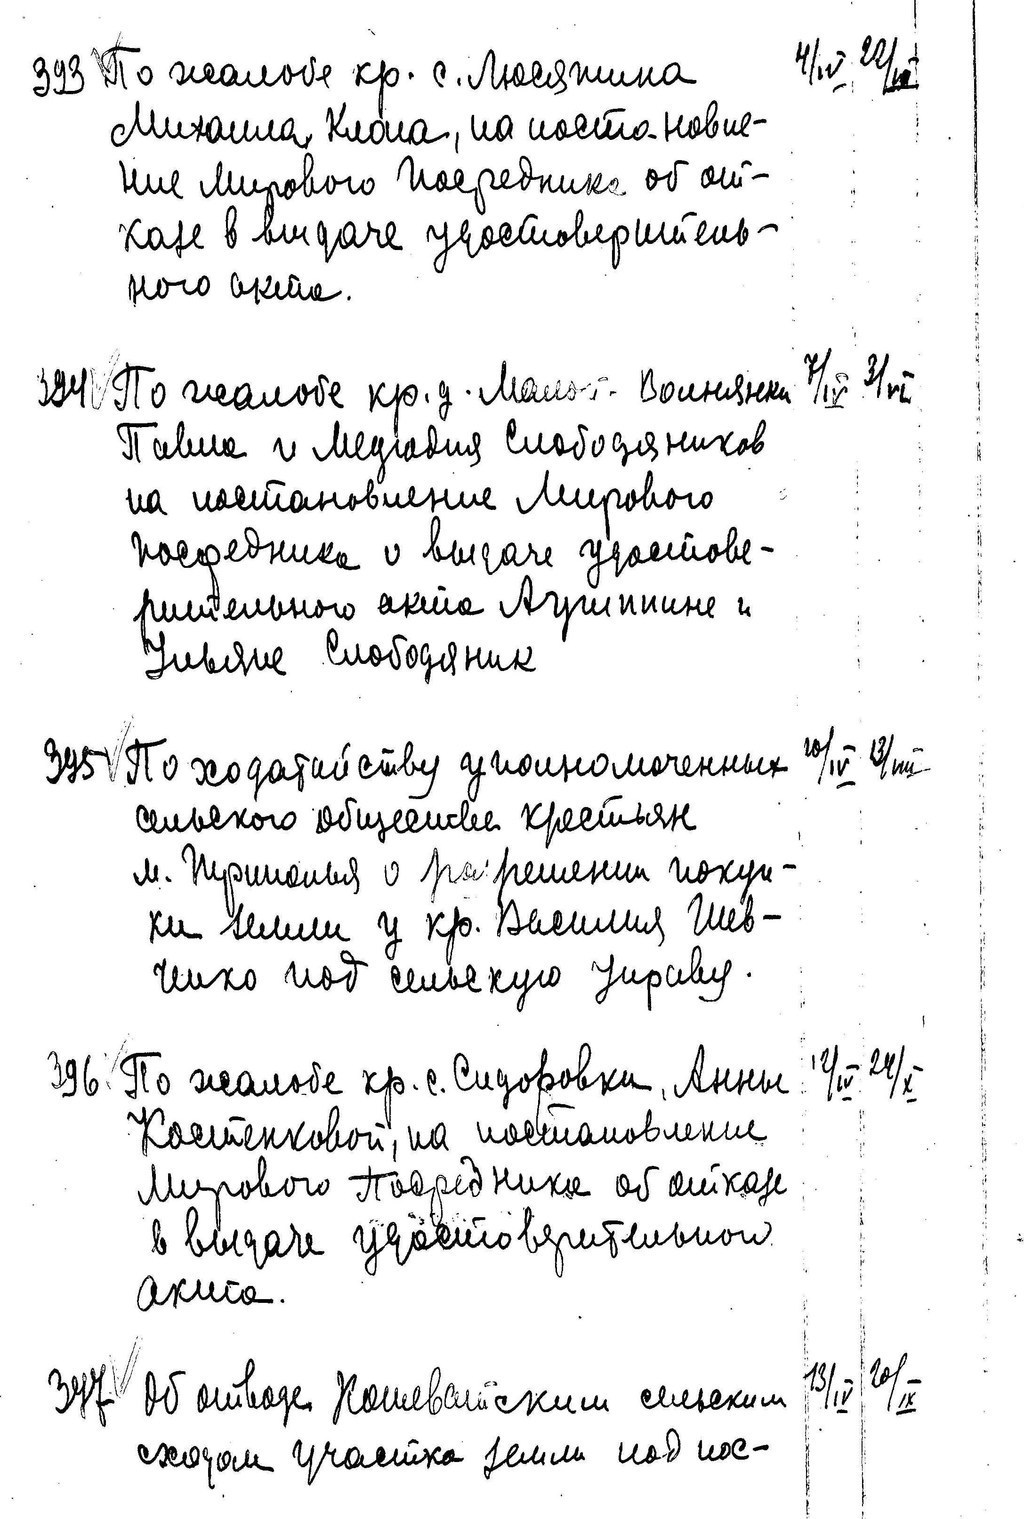 393 По жалобе кр. с. Люсятина 4/IV 22/IX
Михаила Клопа, на постановле-
ние Мирового Посредника об от-
казе в выдаче удостоверитель-
ного акта.
394 По жалобе кр. д. Малой- Волнянки 7/IV 3/VI
Павла и Медфодия Слободяников
на постановление Мирового
посредника о выдаче удостове-
рительного акта Агриппине и
Ульяне Слободяник
395 По ходатайству уполномоченных 10/IV 13/VIII
сельского общества крестьян
м. Триполья о разрешении покуп-
ки земли у кр. Василия Шев-
ченко под сельскую управу.
396 По жалобе кр. с. Сидоровки, Анны 12/IV 24/X
Костенковой, на постановление
Мирового Посредника об отказе
в выдаче удостоверительного
акта.
397 Об отводе Кошеватским сельским 13/IV 20/IX
сходом участка земли под пос-